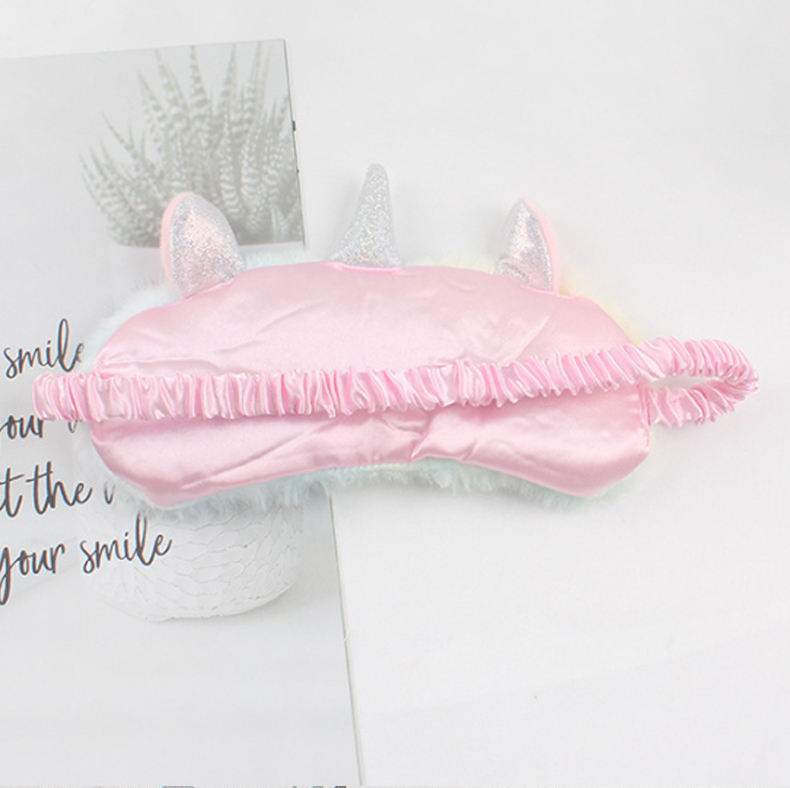 smile
our
t the
your smile